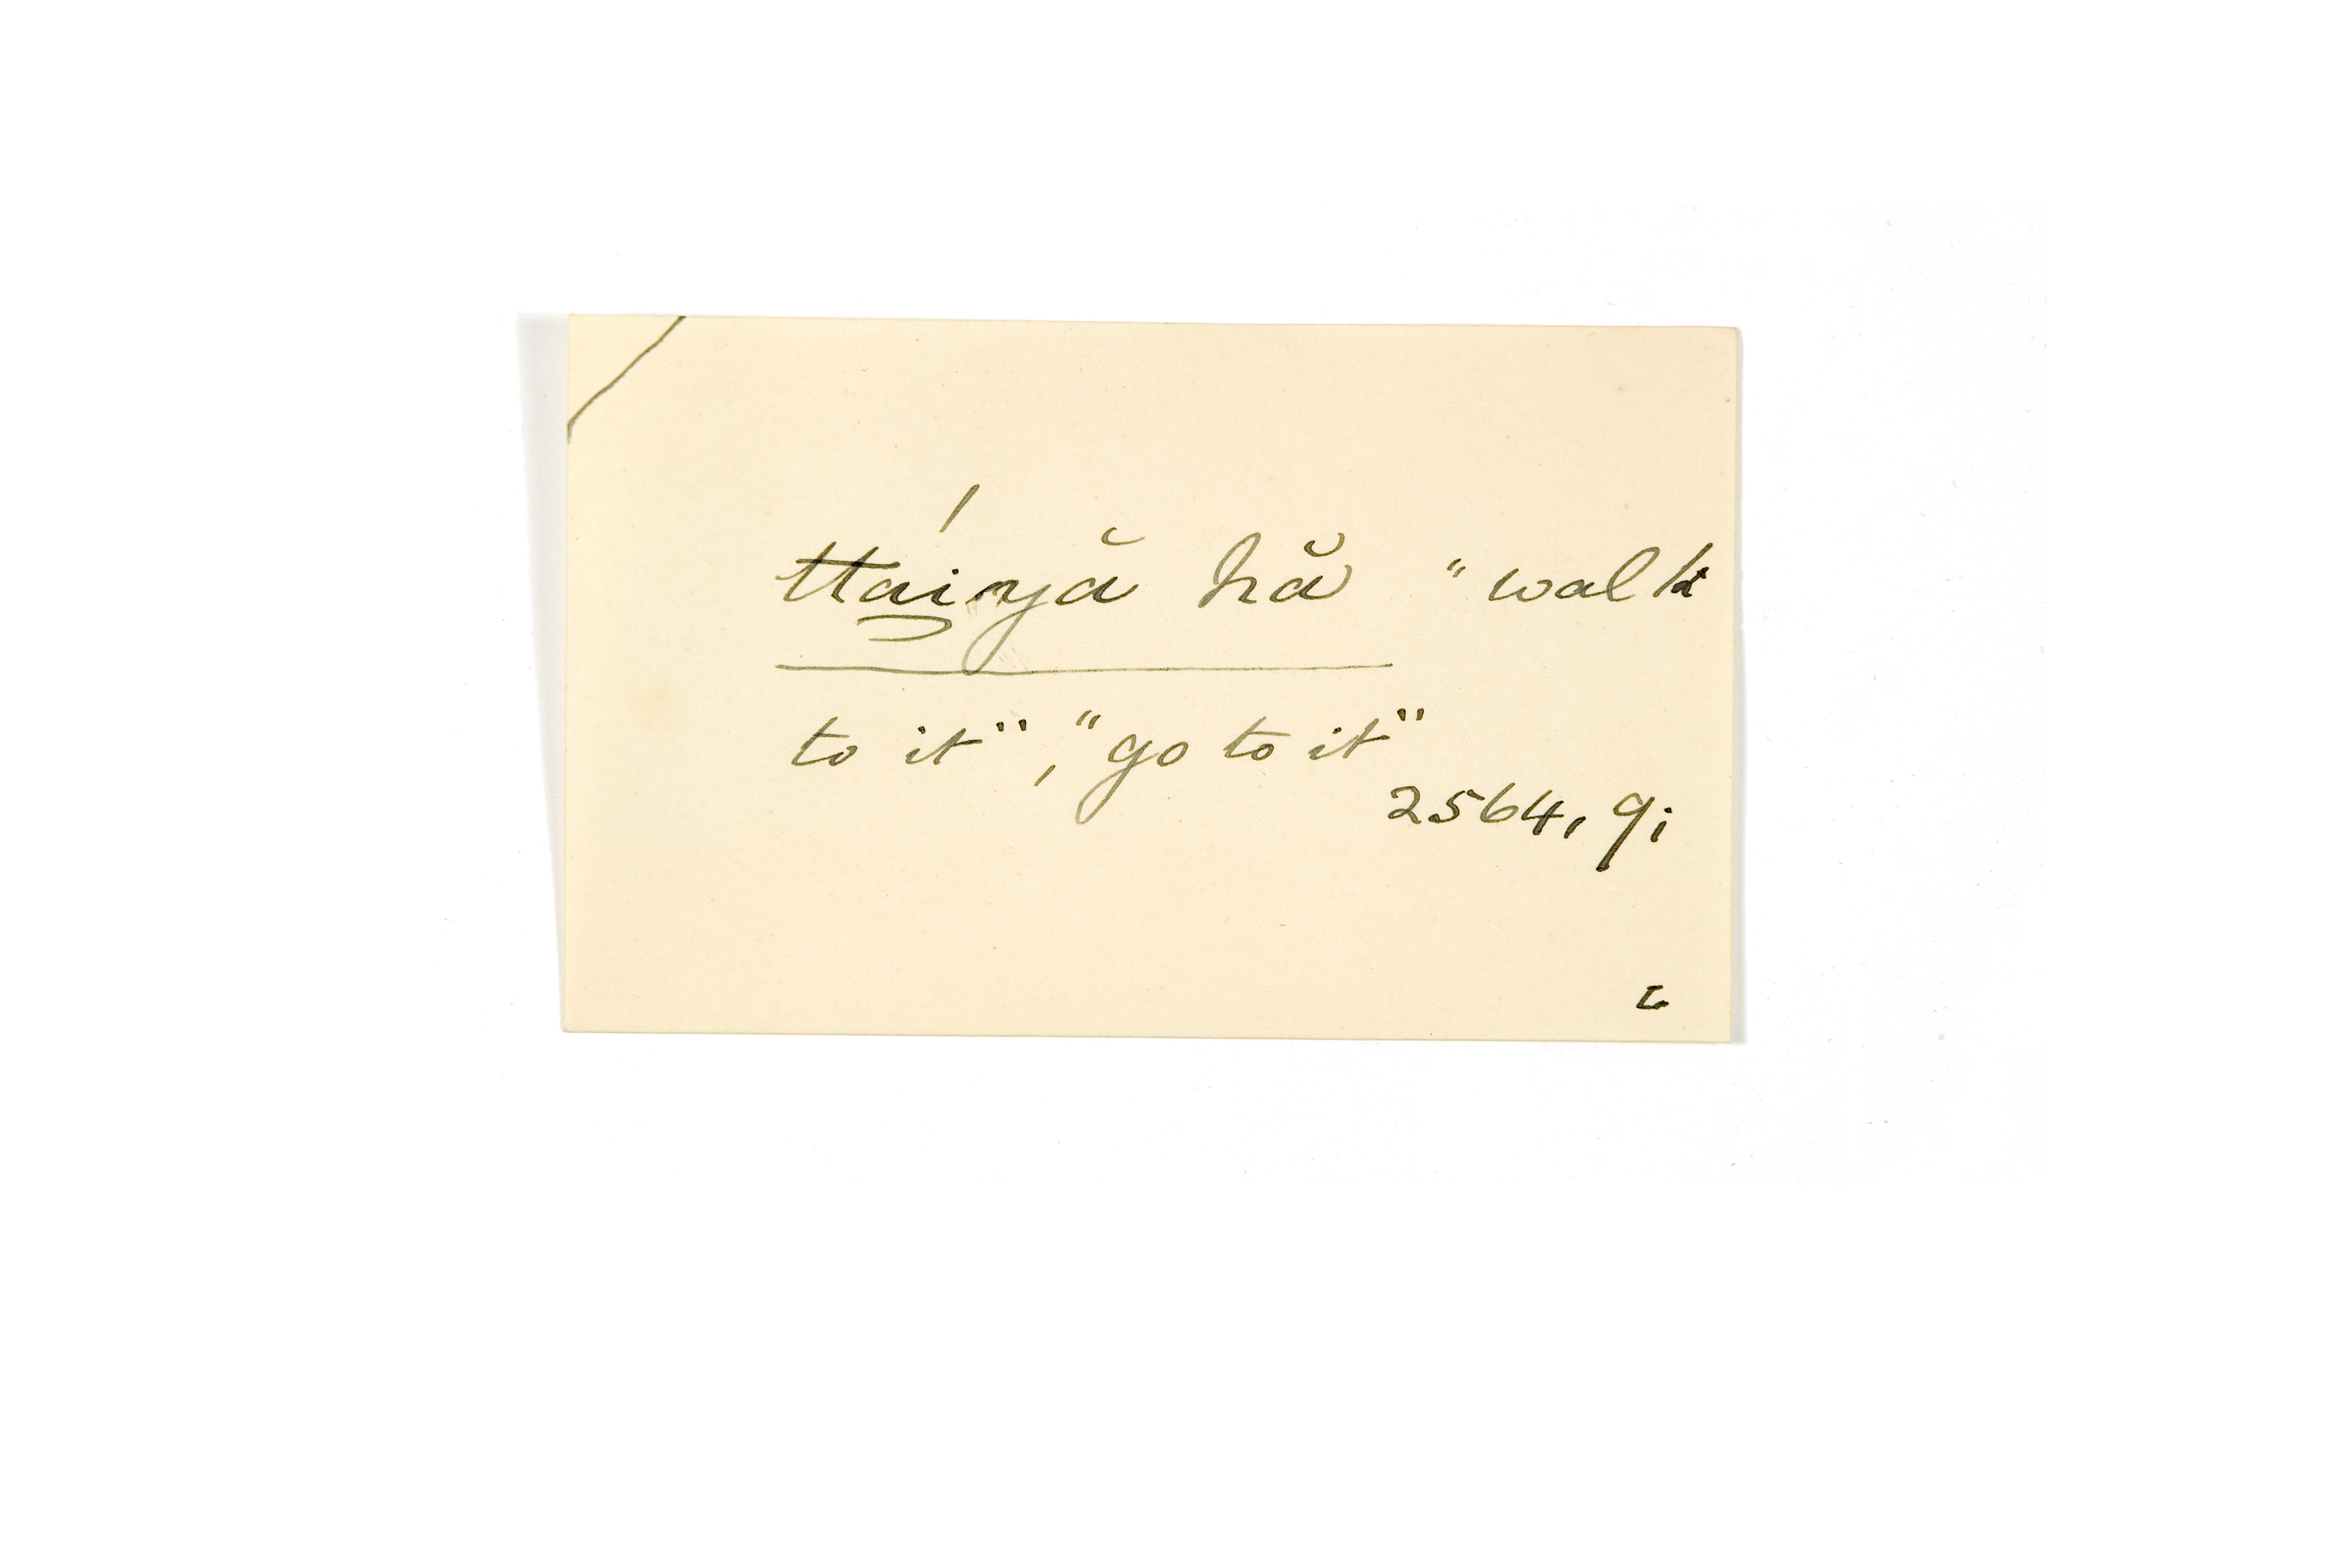 ttáiyă hă "walk
to it", "go to it"
2564, 9;